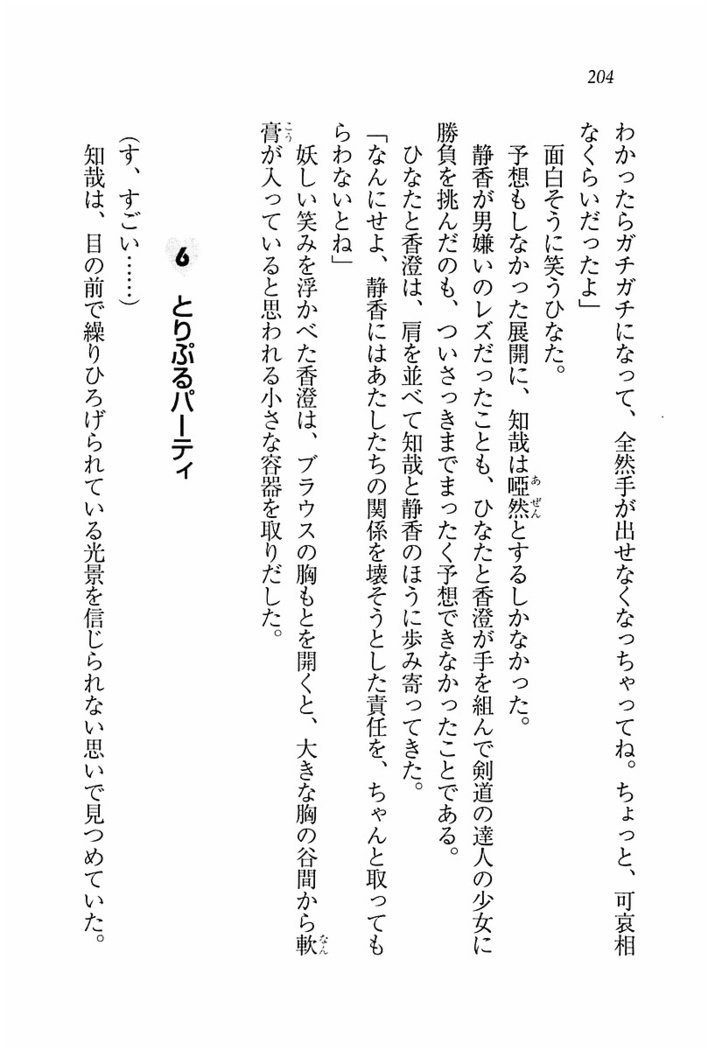 204
わかったらガチガチになって、全然手が出せなくなっちゃってね。ちょっと、可哀相
なくらいだったよ」
面白そうに笑うひなた。
予想もしなかった展開に、知哉は啞然とするしかなかった。
静香が男嫌いのレズだったことも、ひなたと香澄が手を組んで剣道の達人の少女に
勝負を挑んだのも、ついさっきまでまったく予想できなかったことである。
ひなたと香澄は、肩を並べて知哉と静香のほうに歩み寄ってきた。
「なんにせよ、静香にはあたしたちの関係を壊そうとした責任を、ちゃんと取っても
らわないとね」
妖しい笑みを浮かべた香澄は、ブラウスの胸もとを開くと、大きな胸の谷間から軟
膏が入っていると思われる小さな容器を取りだした。
6 とりぷるパーティ
(す、すごい……)
知哉は、目の前で繰りひろげられている光景を信じられない思いで見つめていた。